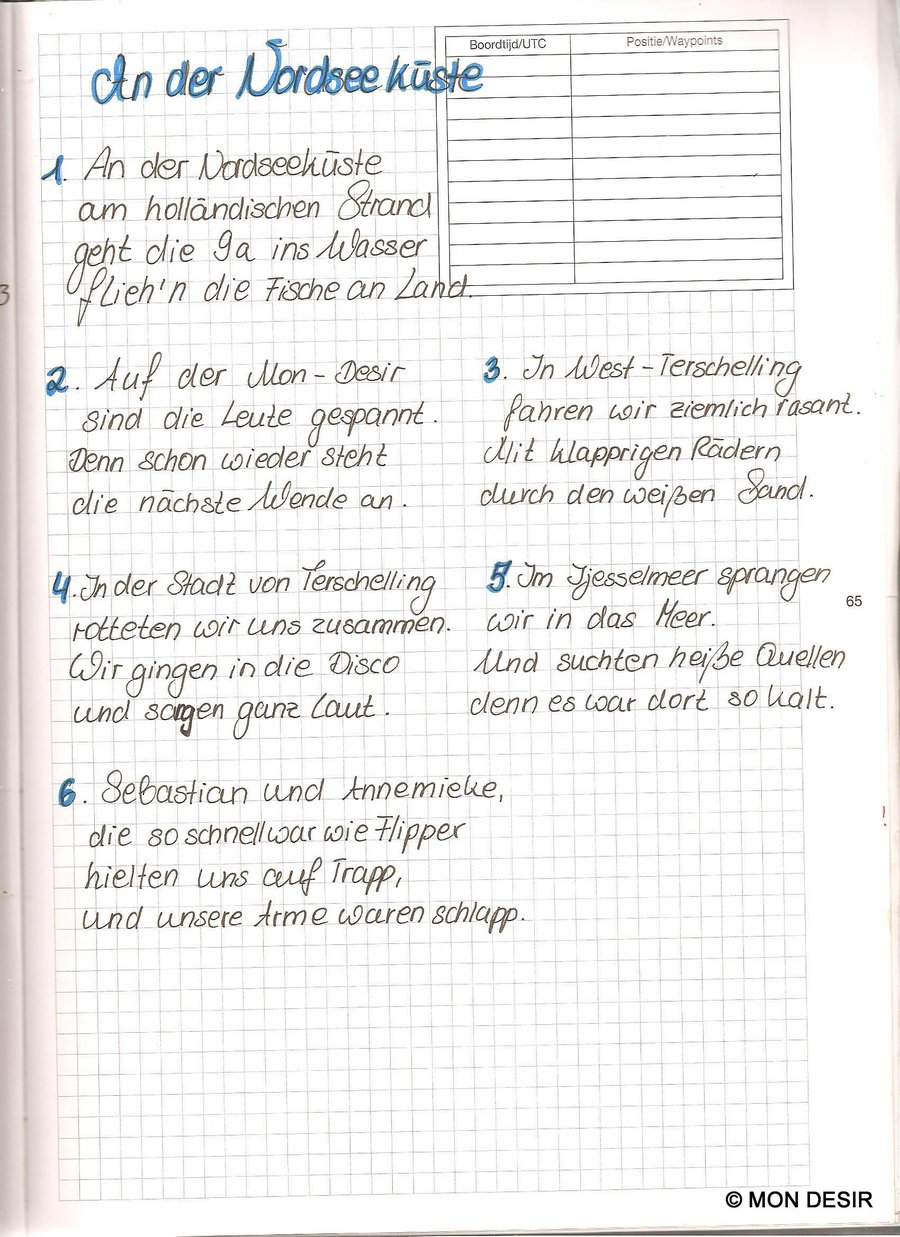 An der Nordseeküste
Boordtijd/UTC
Positie/Waypoints
1. An der Nordseeküste
am holländischen Strand
geht die 9a ins Wasser
flieh'n die Fische an Land.
2. Auf der Mon-Desir
sind die Leute gespannt.
Denn schon wieder steht
die nächste Wende an.
3. In West-Terschelling
fahren wir ziemlich rasant.
Mit klapprigen Rädern
durch den weißen Sand.
4. In der Stadt von Terschelling
rotteten wir uns zusammen.
Wir gingen in die Disco
und sangen ganz laut.
5. Im Ijesselmeer sprangen
wir in das Meer.
Und suchten heiße Quellen
denn es war dort so kalt.
65
6. Sebastian und Annemieke,
die so schnell war wie Flipper
hielten uns auf Trapp,
und unsere Arme waren schlapp.
© MON DESIR